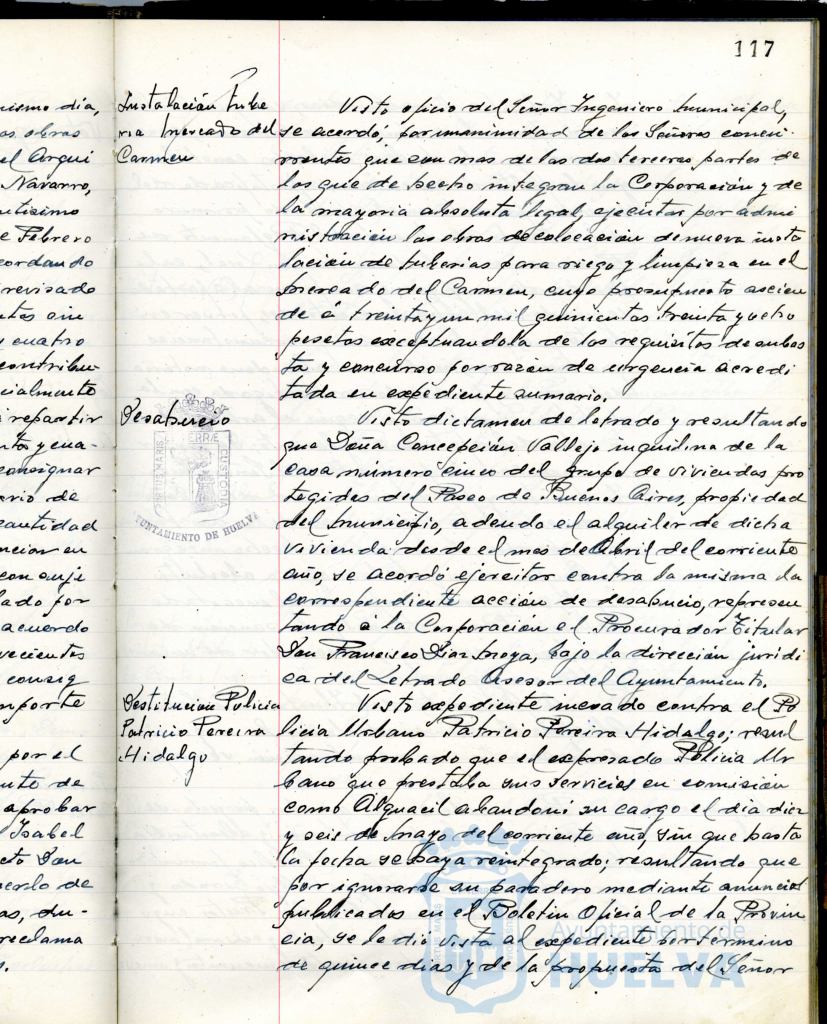 117
nismo día,
as obras
el Arqui
Navarro,
ntísimo
e Febrero
cordando
revisado
ntas cin
y cuatro
contribu-
cialmente
a repartir
nta y cua-
consignar
ario de
cantidad
ncion en
con suje
lado por
acuerdo
vecientos
consig
mporte
por el
nte de
aprobar
Isabel
cto Don
uerlo de
as, du-
reclama
s.
Instalación Tube
ria Mercado del
Carmen
Visto oficio del Señor Ingeniero Municipal,
se acordó, por unanimidad de los Señores concu-
rrentes que son mas de las dos terceras partes de
los que de hecho integran la Corporación y de
la mayoria absoluta legal, ejecutar por admi
nistración las obras de colocación de nueva insta
lación de tuberias para riego y limpieza en el
Mercado del Carmen, cuyo presupuesto ascien
de á treinta y un mil quinientas treinta y ocho
pesetas exceptuandola de los requisitos de subas
ta y concurso por razón de urgencia acredi
tada en expediente sumario.
Desahucio
Visto dictamen de letrado y resultando
que Doña Concepción Vallejo inquilina de la
casa número cinco del grupo de viviendas pro
tegidas del Paseo de Buenos Aires, propiedad
del Municipio, adenda el alquiler de dicha
vivienda desde el mes de Abril del corriente
año, se acordó ejercitar contra la misma la
correspondiente acción de desahucio, represen
tando á la Corporación el Procurador Titular
Don Francisco Diaz Moya, bajo la dirección juridi
ca del Letrado Asesor del Ayuntamiento.
Destitución Policia
Patricio Pereira
Hidalgo
Visto expediente incoado contra el Po
licia Urbano Patricio Pereira Hidalgo; resul
tando probado que el expresado Policia Ur
bano que prestaba sus servicios en comisión
como Alguacil abandonó su cargo el día diez
y seis de Mayo del corriente año, sin que hasta
la fecha se haya reintegrado; resultando que
por ignorarse su paradero mediante anuncios
publicados en el Boletin Oficial de la Provin
cia, se le dió vista al expediente por término
de quince dias y de la propuesta del Señor
PORTUS MARIS
TERRÆ
CUSTODIA
AYUNTAMIENTO DE HUELVA
Ayuntamiento de
HUELVA